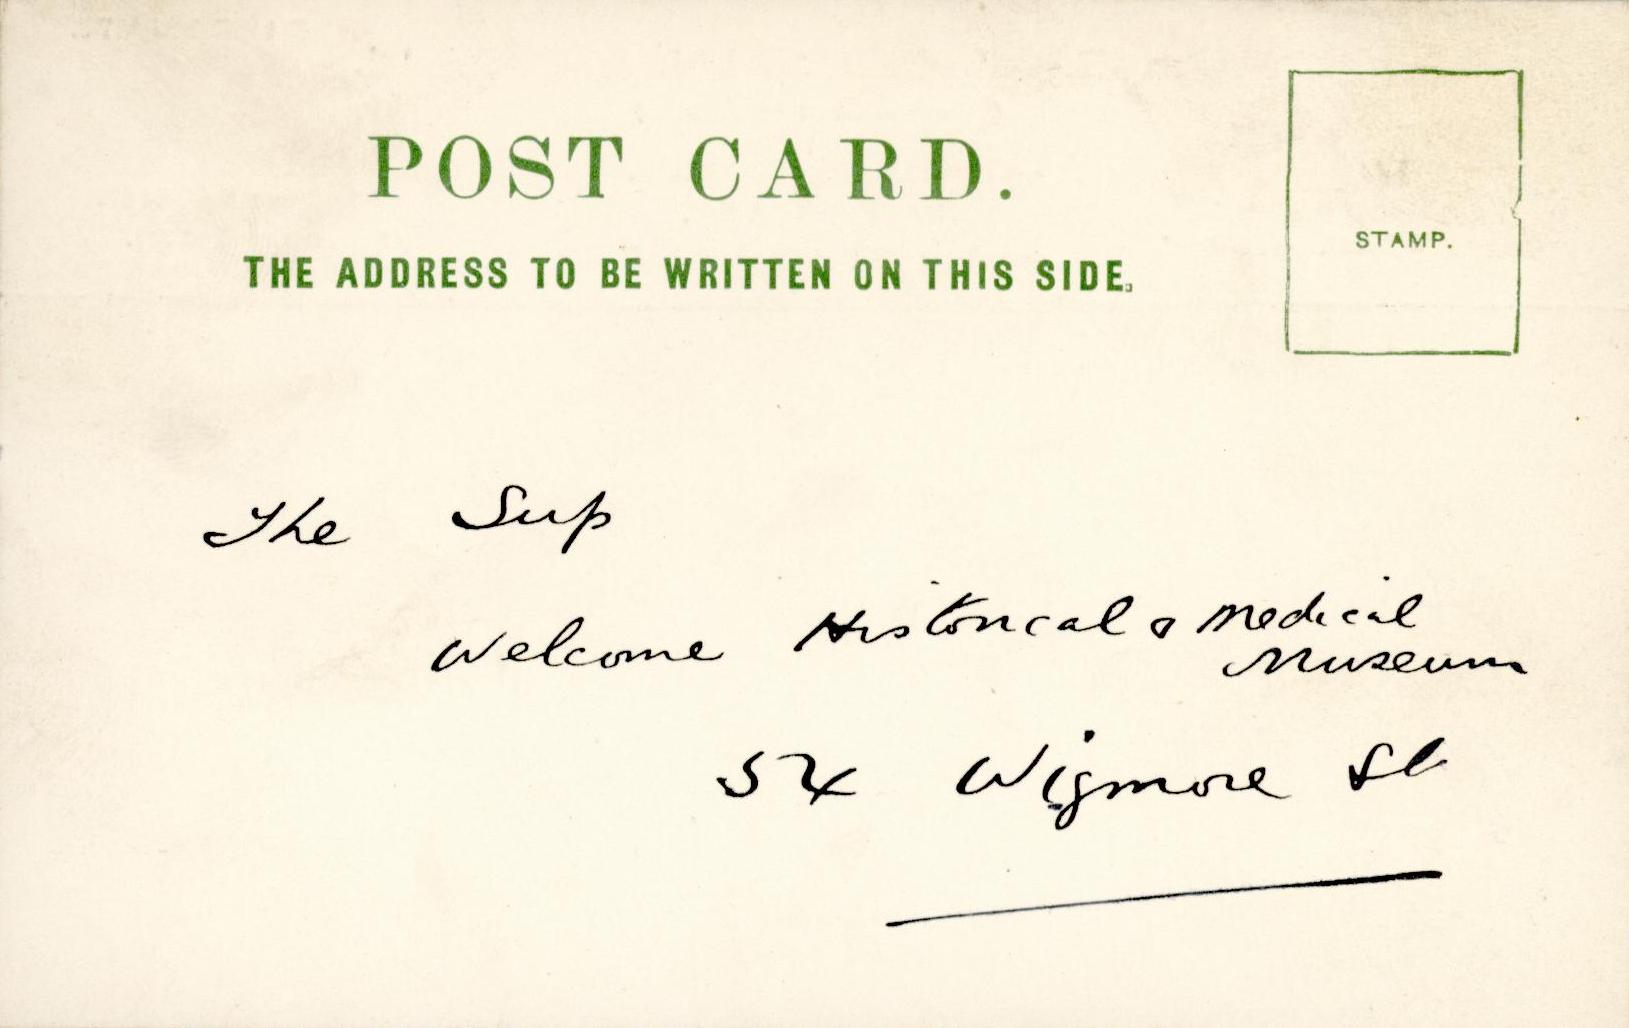 POST CARD.
THE ADDRESS TO BE WRITTEN ON THIS SIDE.
STAMP.
The Sup
Welcome Historical & Medical
Museum
54 Wigmore St